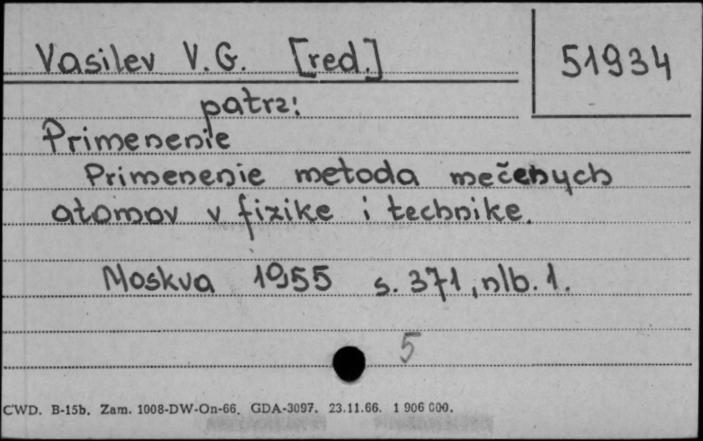 Vasilev V.G. [red.]
51934
patrz:
Primenenie
Primenenie metoda mečenych
atomov v fizike i technike.
Moskva 1955 s. 371, nlb. 1.
5
CWD. B-15b. Zam. 1008-DW-On-66. GDA-3097. 23.11.66. 1 906 000.